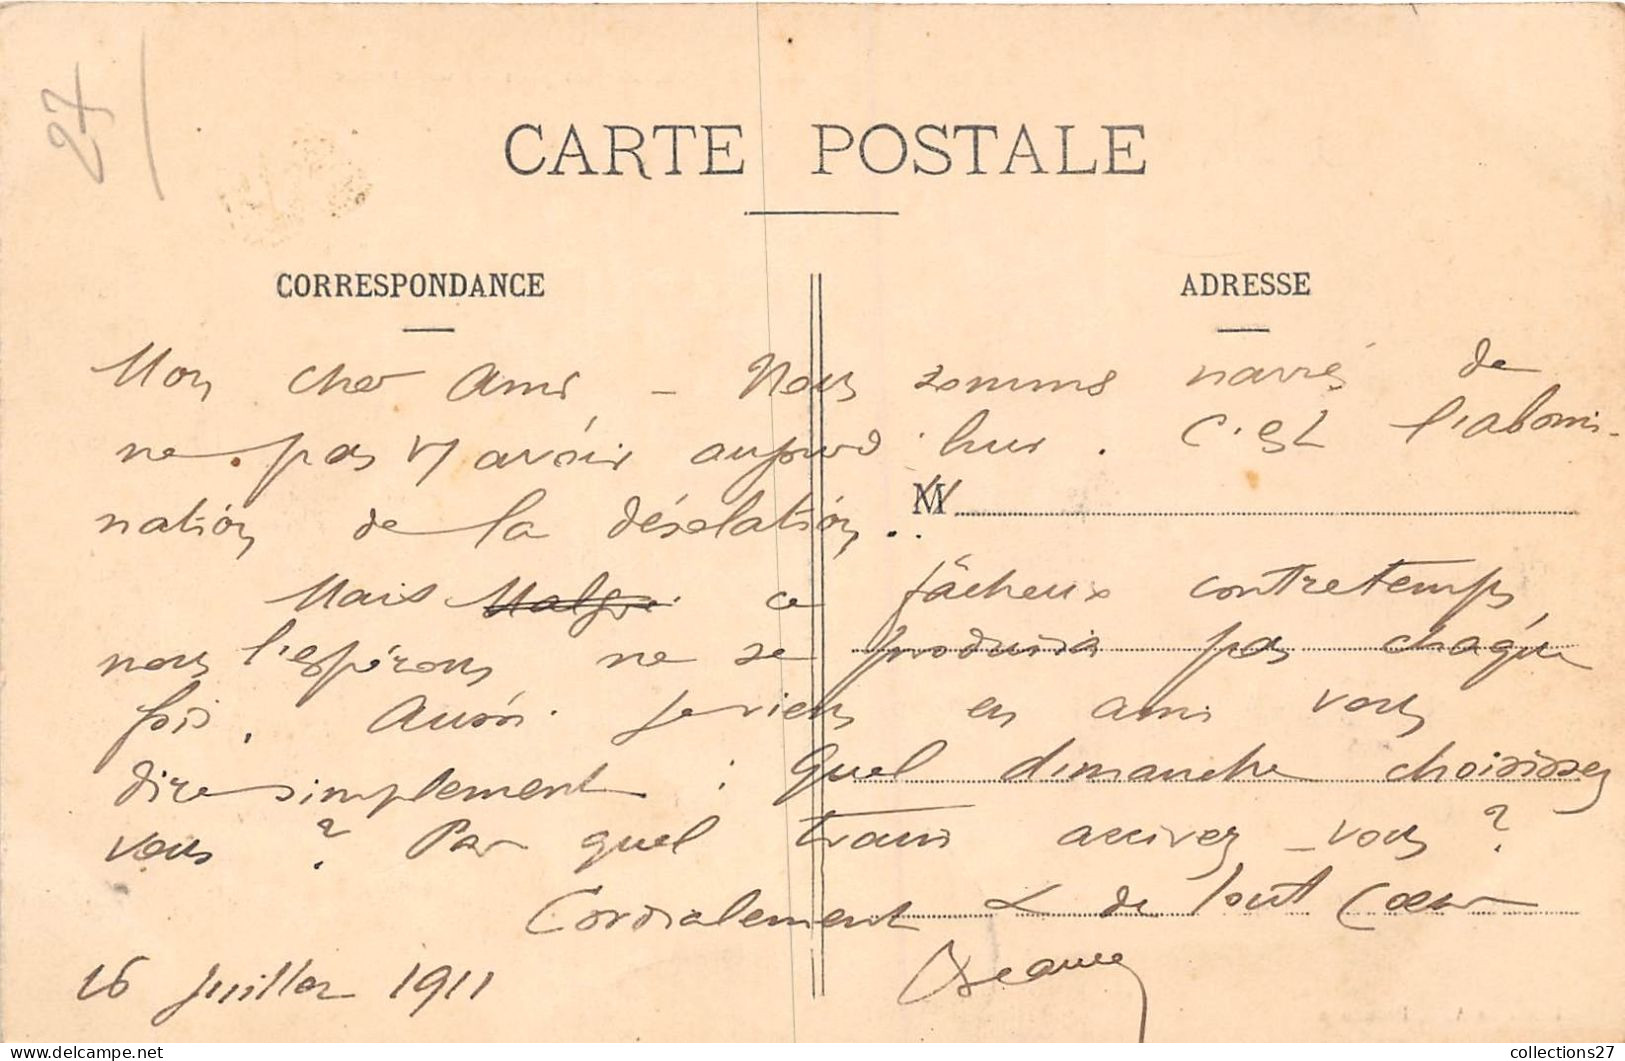 27
CARTE POSTALE
CORRESPONDANCE
ADRESSE
Mon cher Ami - Nous sommes navrés de
ne pas v/ avoir aujourd'hui. C'est l'abomi-
nation de la désolation..
M
Mais Malgré ce fâcheux contretemps,
nous l'espérons ne se produira pas chaque
fois. Aussi je viens en ami vous
dire simplement : Quel dimanche choisissez
vous ? Par quel train arrivez-vous ?
Cordialement & de tout Coeur
16 Juillet 1911
collections27